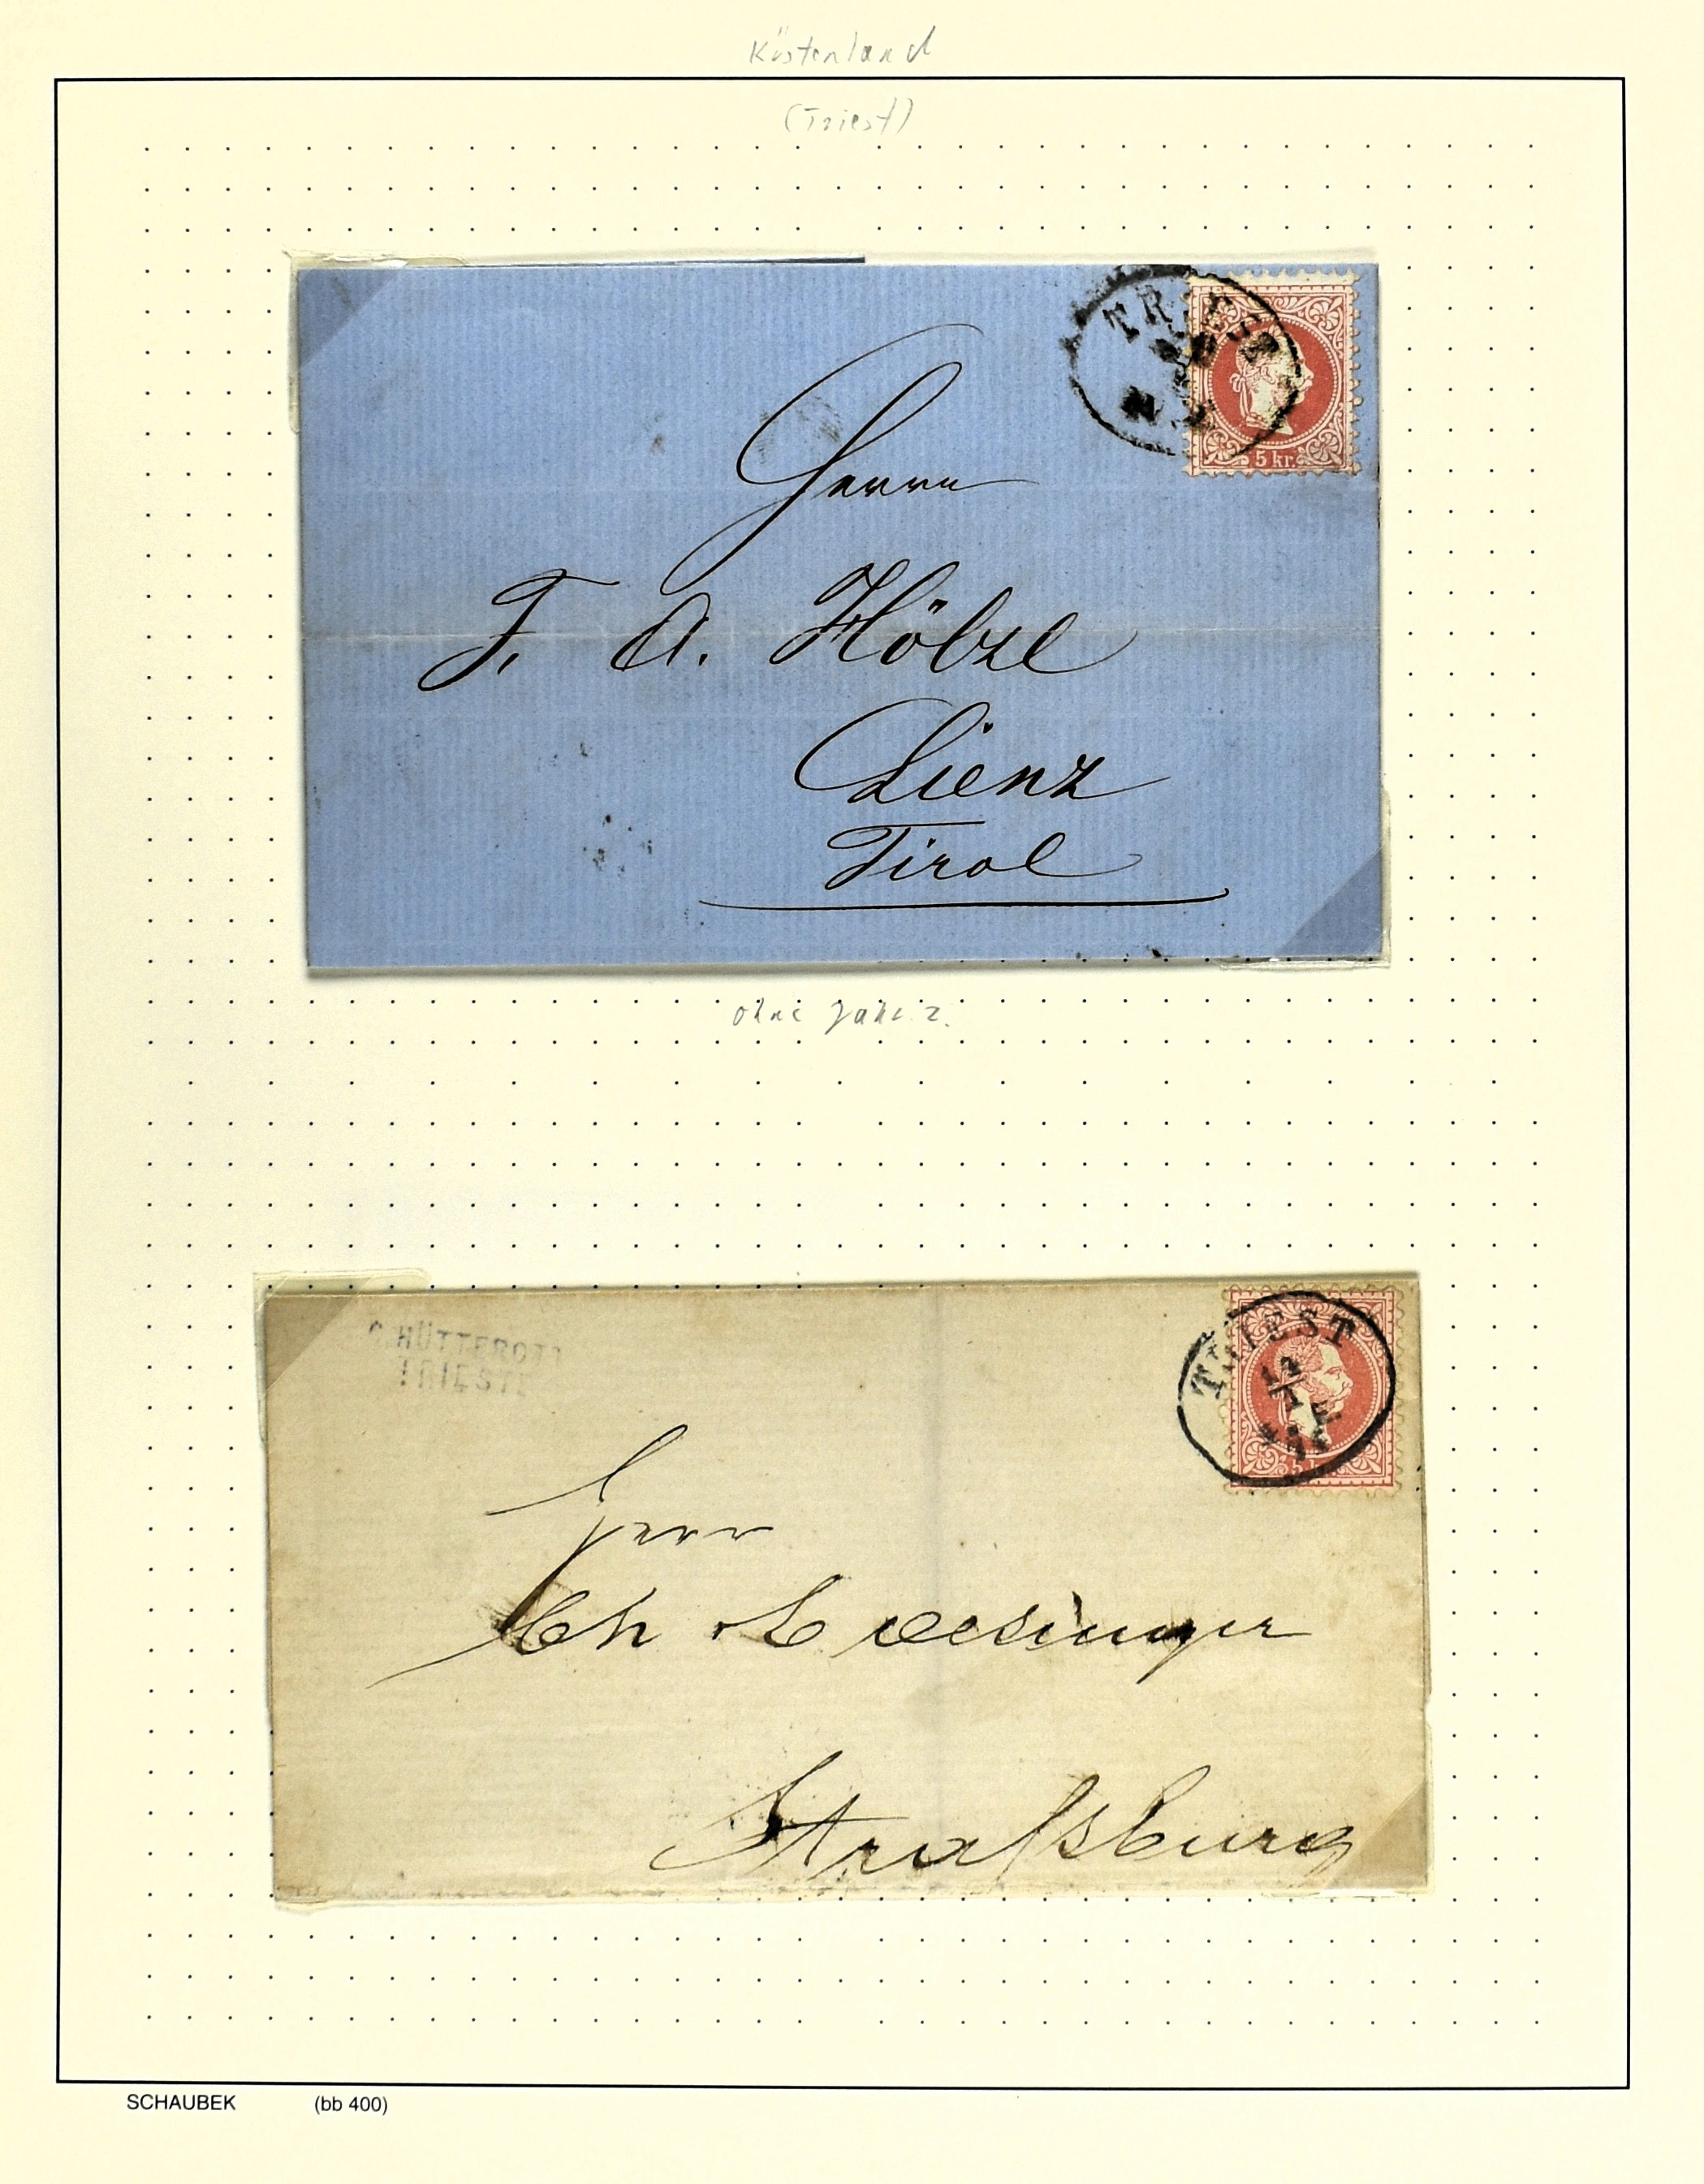 Küstenland
(Triest)
TRIEST
5 kr.
Herrn
F. A. Hölzl
Lienz
Tirol
ohne Jahrz.
HÜTTEROTT
TRIESTE
TRIEST
5
Herr
Ch
Strassburg
SCHAUBEK (bb 400)